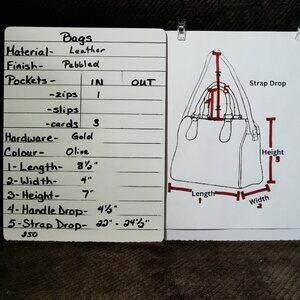 Bags
Material- Leather
Finish- Pebbled
Pockets- IN OUT
-zips 1
-slips
-cards 3
Hardware- Gold
Colour- Olive
1-Length- 8½"
2-Width- 4"
3-Height- 7"
4-Handle Drop- 4½"
5-Strap Drop- 22" - 24½"
250
Strap Drop
5
Height
3
Length
1
Width
2